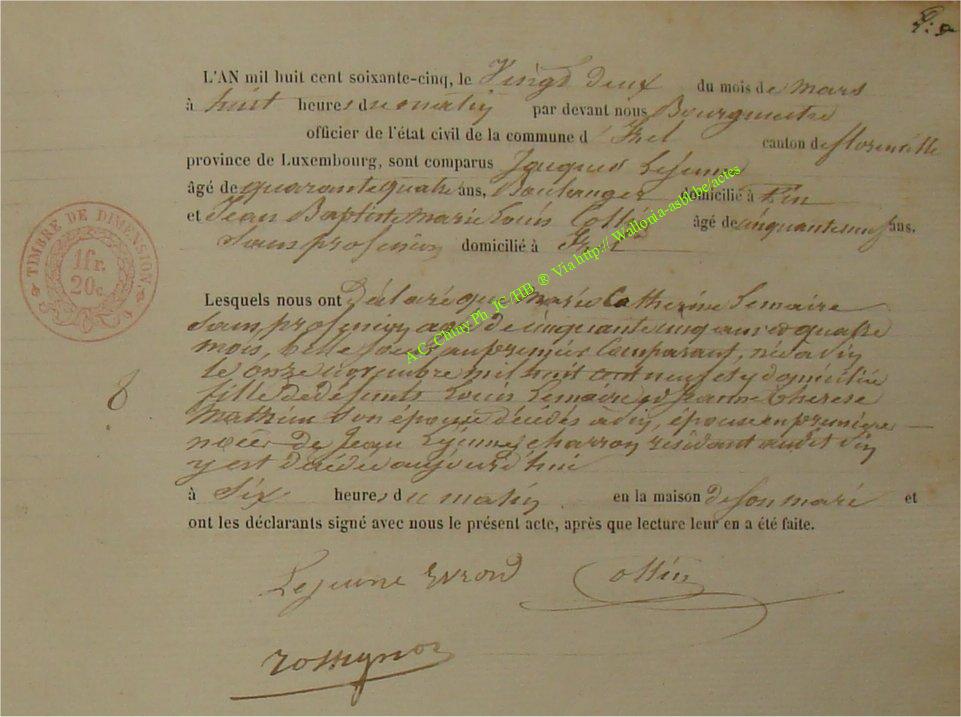 L'AN mil huit cent soixante-cinq, le Vingt deux du mois de mars
à huit heures du matin par devant nous Bourgmestre
officier de l'état civil de la commune d'Izel canton de florenville
province de Luxembourg, sont comparus Jacques Lejeune
âgé de quarante quatre ans, Boulanger domicilié à
et Jean Baptiste Marie Louis Collin âgé de cinquante neuf ans.
Sans profession domicilié à Izel
Lesquels nous ont Déclaré que Marie Catherine Lemaire
Sans profession, agée de cinquante cinq ans et quatre
mois, belle soeur au premier Comparant, née à
le onze novembre mil huit cent neuf et y domiciliée
fille de défunts Louis Lemaire et Jeanne Therese
Mathieu son épouse décédés à épouse en première
noces de Jean Lejeune charron résidant audit
y est décédée aujourd'hui
à Six heures du matin en la maison de son mari et
ont les déclarants signé avec nous le présent acte, après que lecture leur en a été faite.
Lejeune Evrard Collin
Rossignon
TIMBRE DE DIMENSION
1 fr.
20 c.
8
A.C. Chiny Ph JC/HB ® Via http:// Wallonia-asbl.be/actes